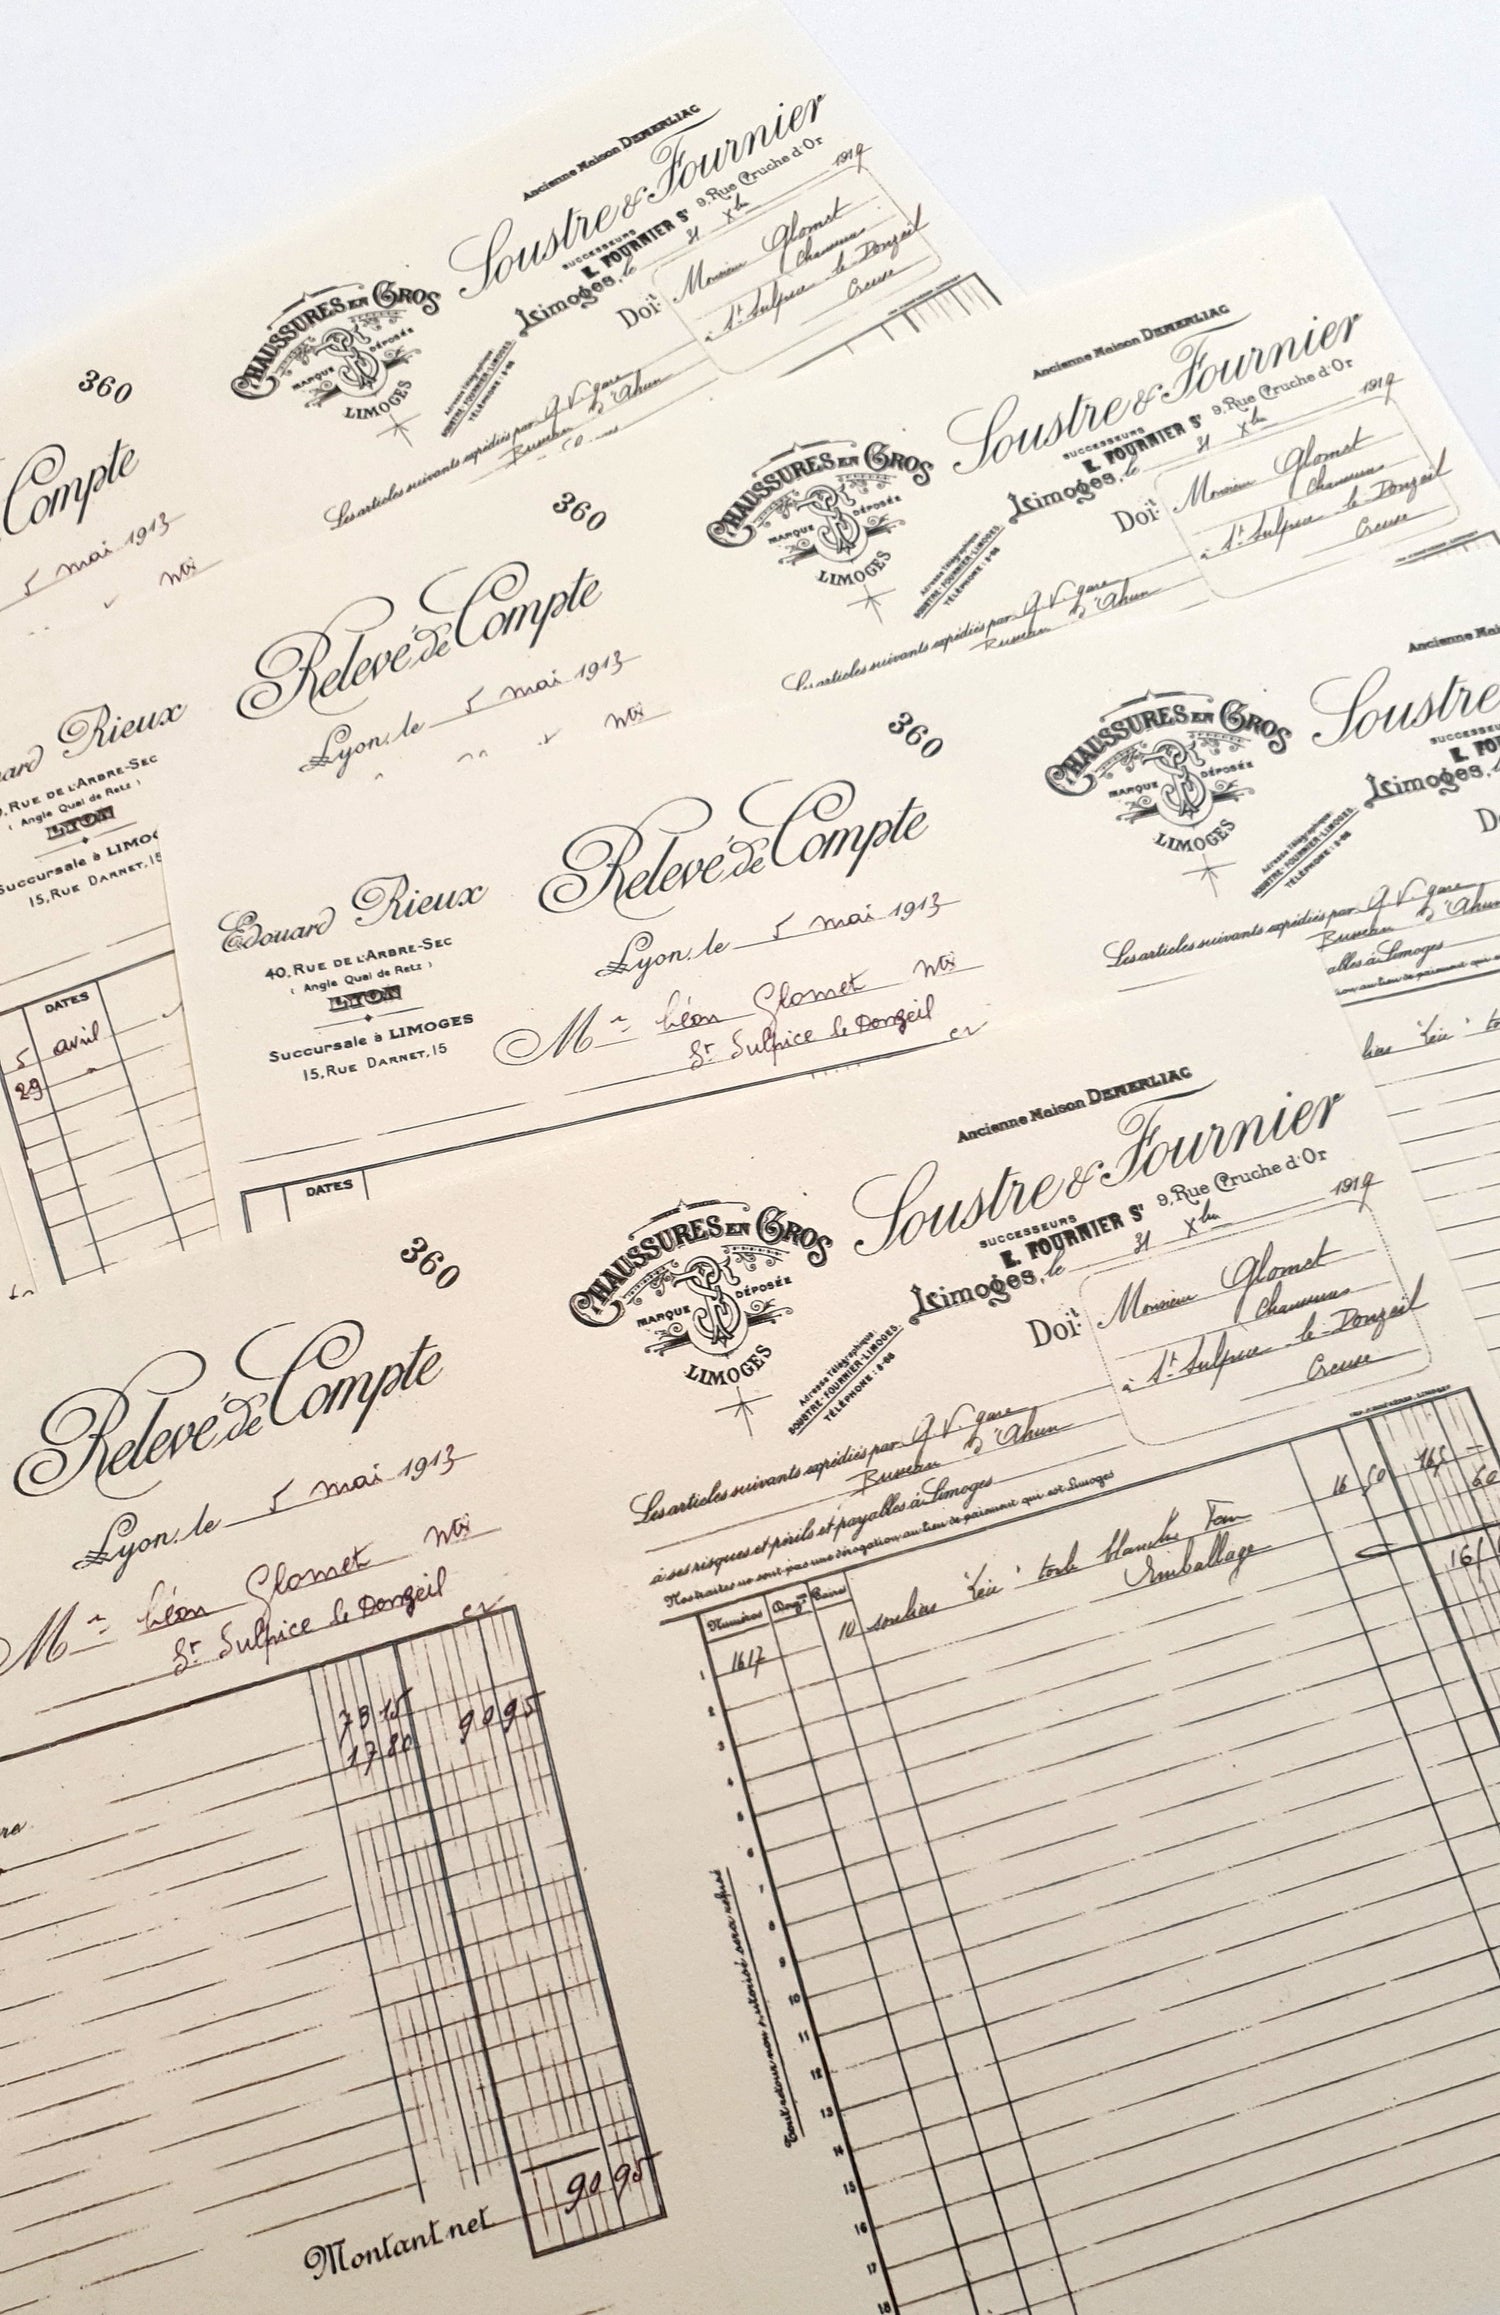 Ancienne Maison DEMERLIAC
Soustre & Fournier
SUCCESSEURS
E. FOURNIER Sr 9, Rue Cruche d'Or
Limoges, le 31 Xbre 1919
CHAUSSURES EN GROS
MARQUE DÉPOSÉE
LIMOGES
Adresse Télégraphique:
SOUSTRE-FOURNIER-LIMOGES
TÉLÉPHONE: 8-68
Doit Monsieur Glomet
Chaussures
à St Sulpice le Donzeil
Creuse
Les articles suivants expédiés par G.V. gare
Busseau d'Ahun
360
Compte
5 mai 1913
360
Relevé de Compte
Lyon, le 5 mai 1913
Ancienne Maison DEMERLIAC
Soustre & Fournier
SUCCESSEURS
E. FOURNIER Sr 9, Rue Cruche d'Or
Limoges, le 31 Xbre 1919
CHAUSSURES EN GROS
MARQUE DÉPOSÉE
LIMOGES
Adresse Télégraphique:
SOUSTRE-FOURNIER-LIMOGES
TÉLÉPHONE: 8-68
Doit Monsieur Glomet
Chaussures
à St Sulpice le Donzeil
Creuse
Les articles suivants expédiés par G.V. gare
Busseau d'Ahun
Rieux
RUE DE L'ARBRE-SEC
(Angle Quai de Retz)
LYON
Succursale à LIMO
15, RUE DARNET, 15
DATES
5 avril
29
360
Relevé de Compte
Lyon, le 5 mai 1913
Edouard Rieux
40, RUE DE L'ARBRE-SEC
(Angle Quai de Retz)
LYON
Succursale à LIMOGES
15, RUE DARNET, 15
Mr Léon Glomet
St Sulpice le Donzeil
DATES
Ancienne Mais
Soustre
CHAUSSURES EN GROS
MARQUE DÉPOSÉE
LIMOGES
Limoges,
Adresse Télégraphique:
SOUSTRE-FOURNIER-LIMOGES
TÉLÉPHONE: 8-68
Les articles suivants expédiés par G.V. gare
Busseau d'Ahun
ables à Limoges
360
Relevé de Compte
Lyon, le 5 mai 1913
Mr Léon Glomet
St Sulpice le Donzeil
73 15
17 80 90 95
90 95
Montant net
Ancienne Maison DEMERLIAC
Soustre & Fournier
SUCCESSEURS
E. FOURNIER Sr 9, Rue Cruche d'Or
Limoges, le 31 Xbre 1919
CHAUSSURES EN GROS
MARQUE DÉPOSÉE
LIMOGES
Adresse Télégraphique:
SOUSTRE-FOURNIER-LIMOGES
TÉLÉPHONE: 8-68
Doit Monsieur Glomet
Chaussures
à St Sulpice le Donzeil
Creuse
Les articles suivants expédiés par G.V. gare
Busseau d'Ahun
à ses risques et périls et payables à Limoges
Nos traites ne sont pas une dérogation au lieu de paiement qui est Limoges
Numéros Douz.nes Paires
1617 10 souliers toile blanche 16 50 165 —
Emballage 60
1
2
3
4
5
6
7
8
9
10
11
12
13
14
15
16
17
18
Tout retour non autorisé sera refusé